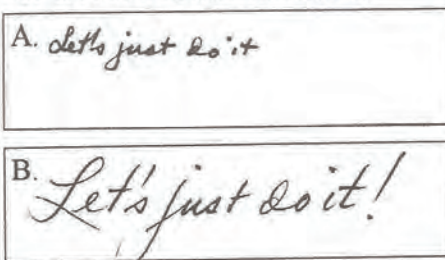 A. Let's just do it
B. Let's just do it!